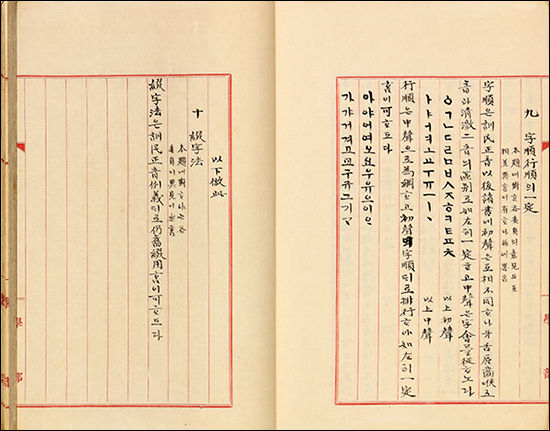 九 字順行順의一定
本題에對ᄒᆞ야各委員의意見도互
字順은訓民正音以後諸書에初聲은互相不同ᄒᆞ나牙舌唇齒喉五
音과淸激二音의區別로如左히一定ᄒᆞ고中聲은字會를從ᄒᆞ노라
ㆁㄱㄴㄷㄹㅁㅂㅅㅈㅎㅋㅌㅍㅊ 以上初聲
ㅏㅑㅓㅕㅗㅛㅜㅠㅡㅣㆍ 以上中聲
行順은中聲으로爲綱ᄒᆞ고初聲字順ᄃᆡ로排行ᄒᆞ야如左히一定
홈이可ᄒᆞ도다
아야어여오요우유으이ᄋᆞ
가갸거겨고교구규그기ᄀᆞ
以下倣此
十 綴字法
本題에對ᄒᆞ야ᄂᆞᆫ各
委員의異見이無홈
綴字法은訓民正音例義ᄃᆡ로仍舊綴用홈이可ᄒᆞ도다
學部